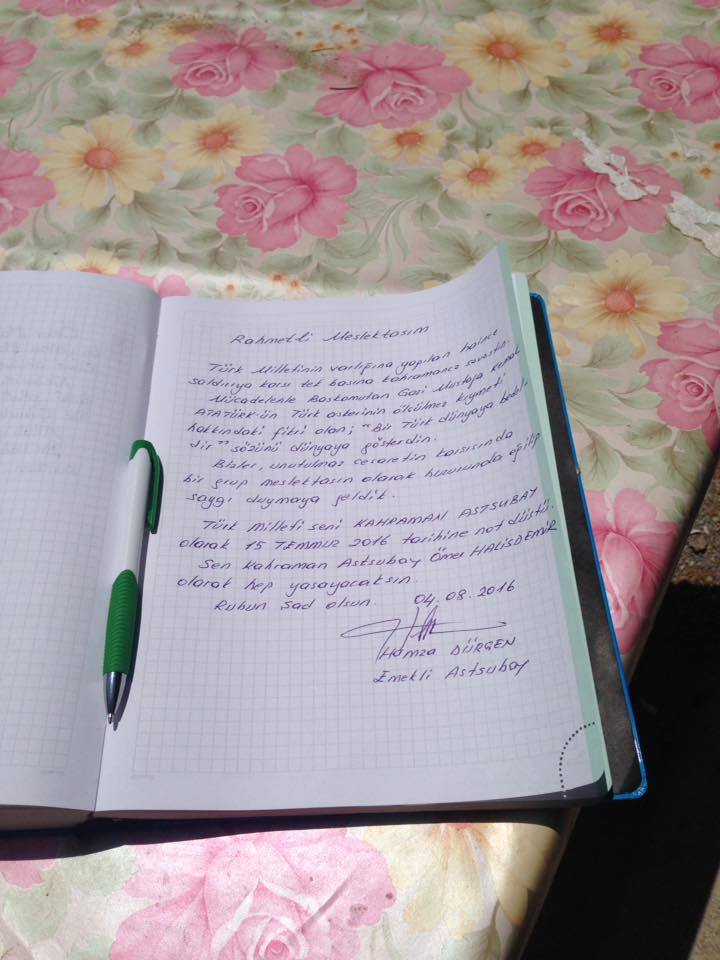 Rahmetli Meslektasım
Türk Milletinin varlığına yapılan haince
saldırıya karsı tek basına kahramanca savastın.
Mücadelenle Baskomutan Gazi Mustafa Kemal
ATATÜRK'ün Türk askerinin ölçülmez kıymeti
hakkındaki fikri olan; "Bir Türk dünyaya bedel-
dir" sözünü dünyaya gösterdin.
Bizler, unutulmaz cesaretin karsısında
bir grup meslektasın olarak huzurunda eğilip
saygı duymaya geldik.
Türk Milleti seni KAHRAMAN ASTSUBAY
olarak 15 TEMMUZ 2016 tarihine not düstü.
Sen Kahraman Astsubay Ömer HALİSDEMİR
olarak hep yasayacaksın.
Ruhun Sad olsun. 04.08.2016
Hamza DÜRGEN
Emekli Astsubay